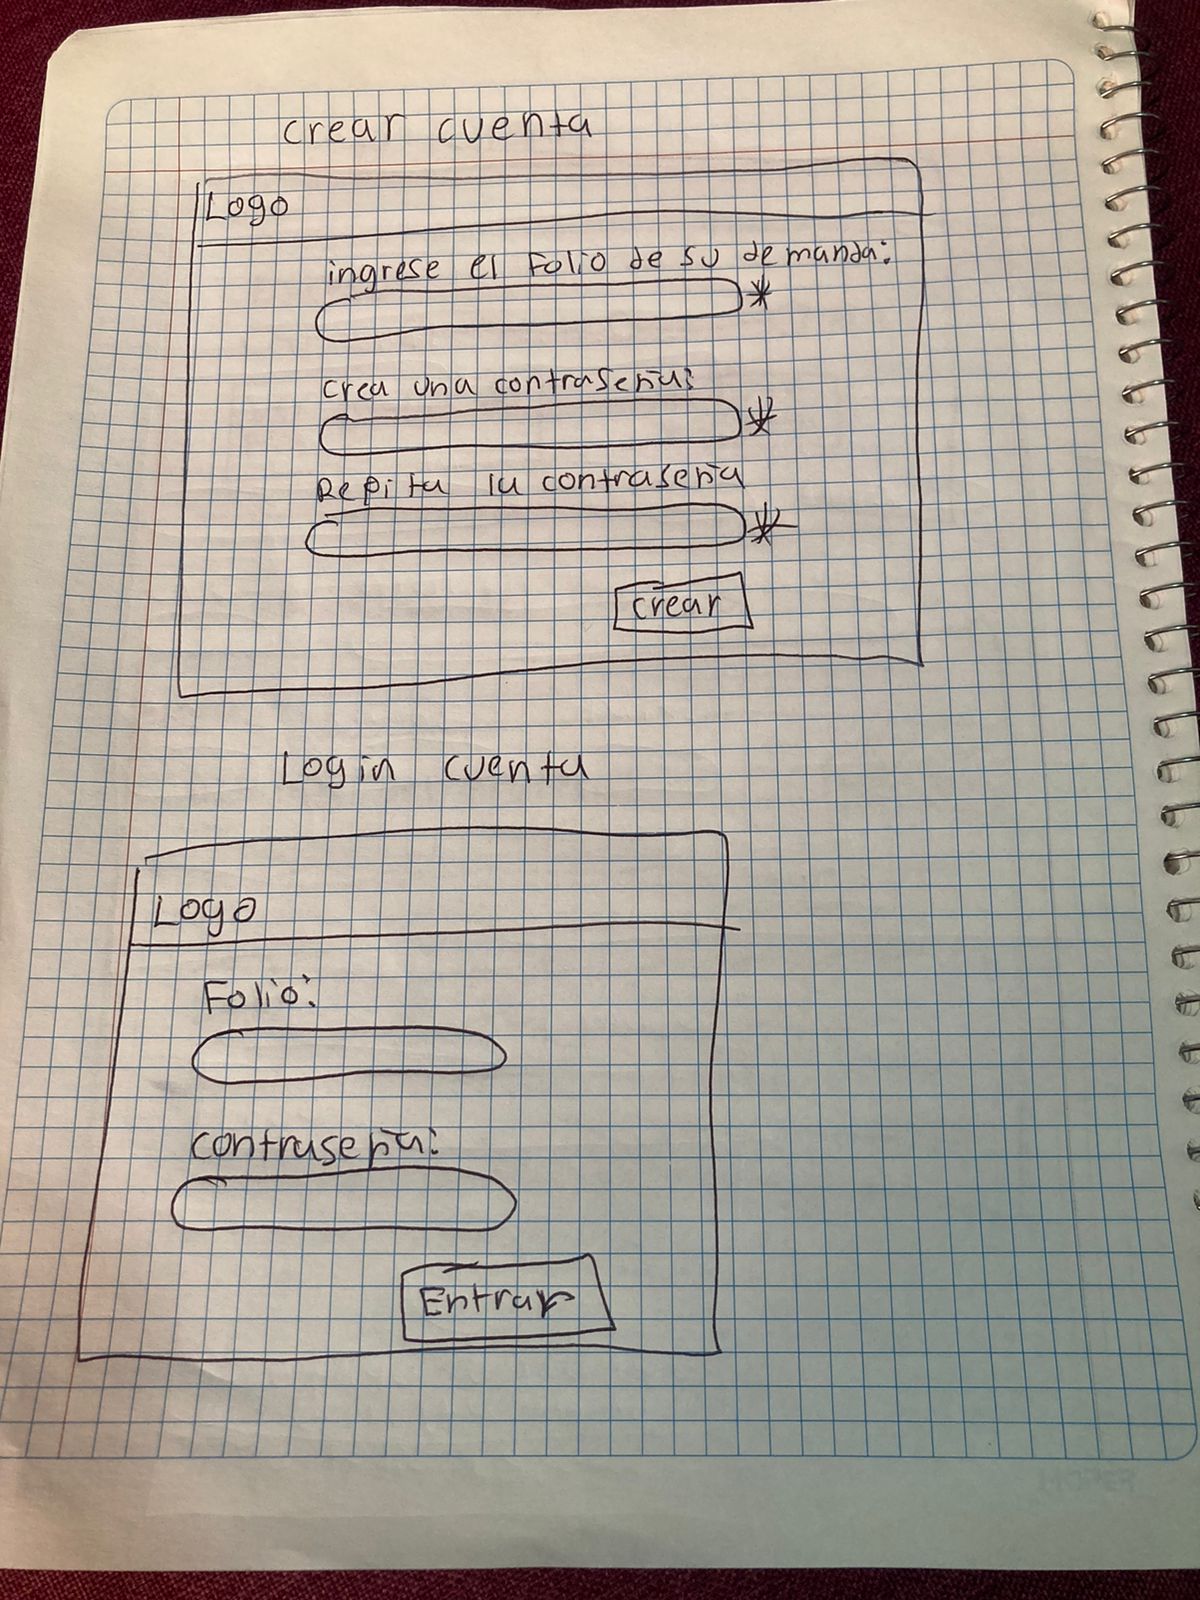 crear cuenta
Logo
ingrese el Folio de su demanda:
*
crea una contraseña:
*
Repita la contraseña
*
crear
Login cuenta
Logo
Folio:
contraseña:
Entrar